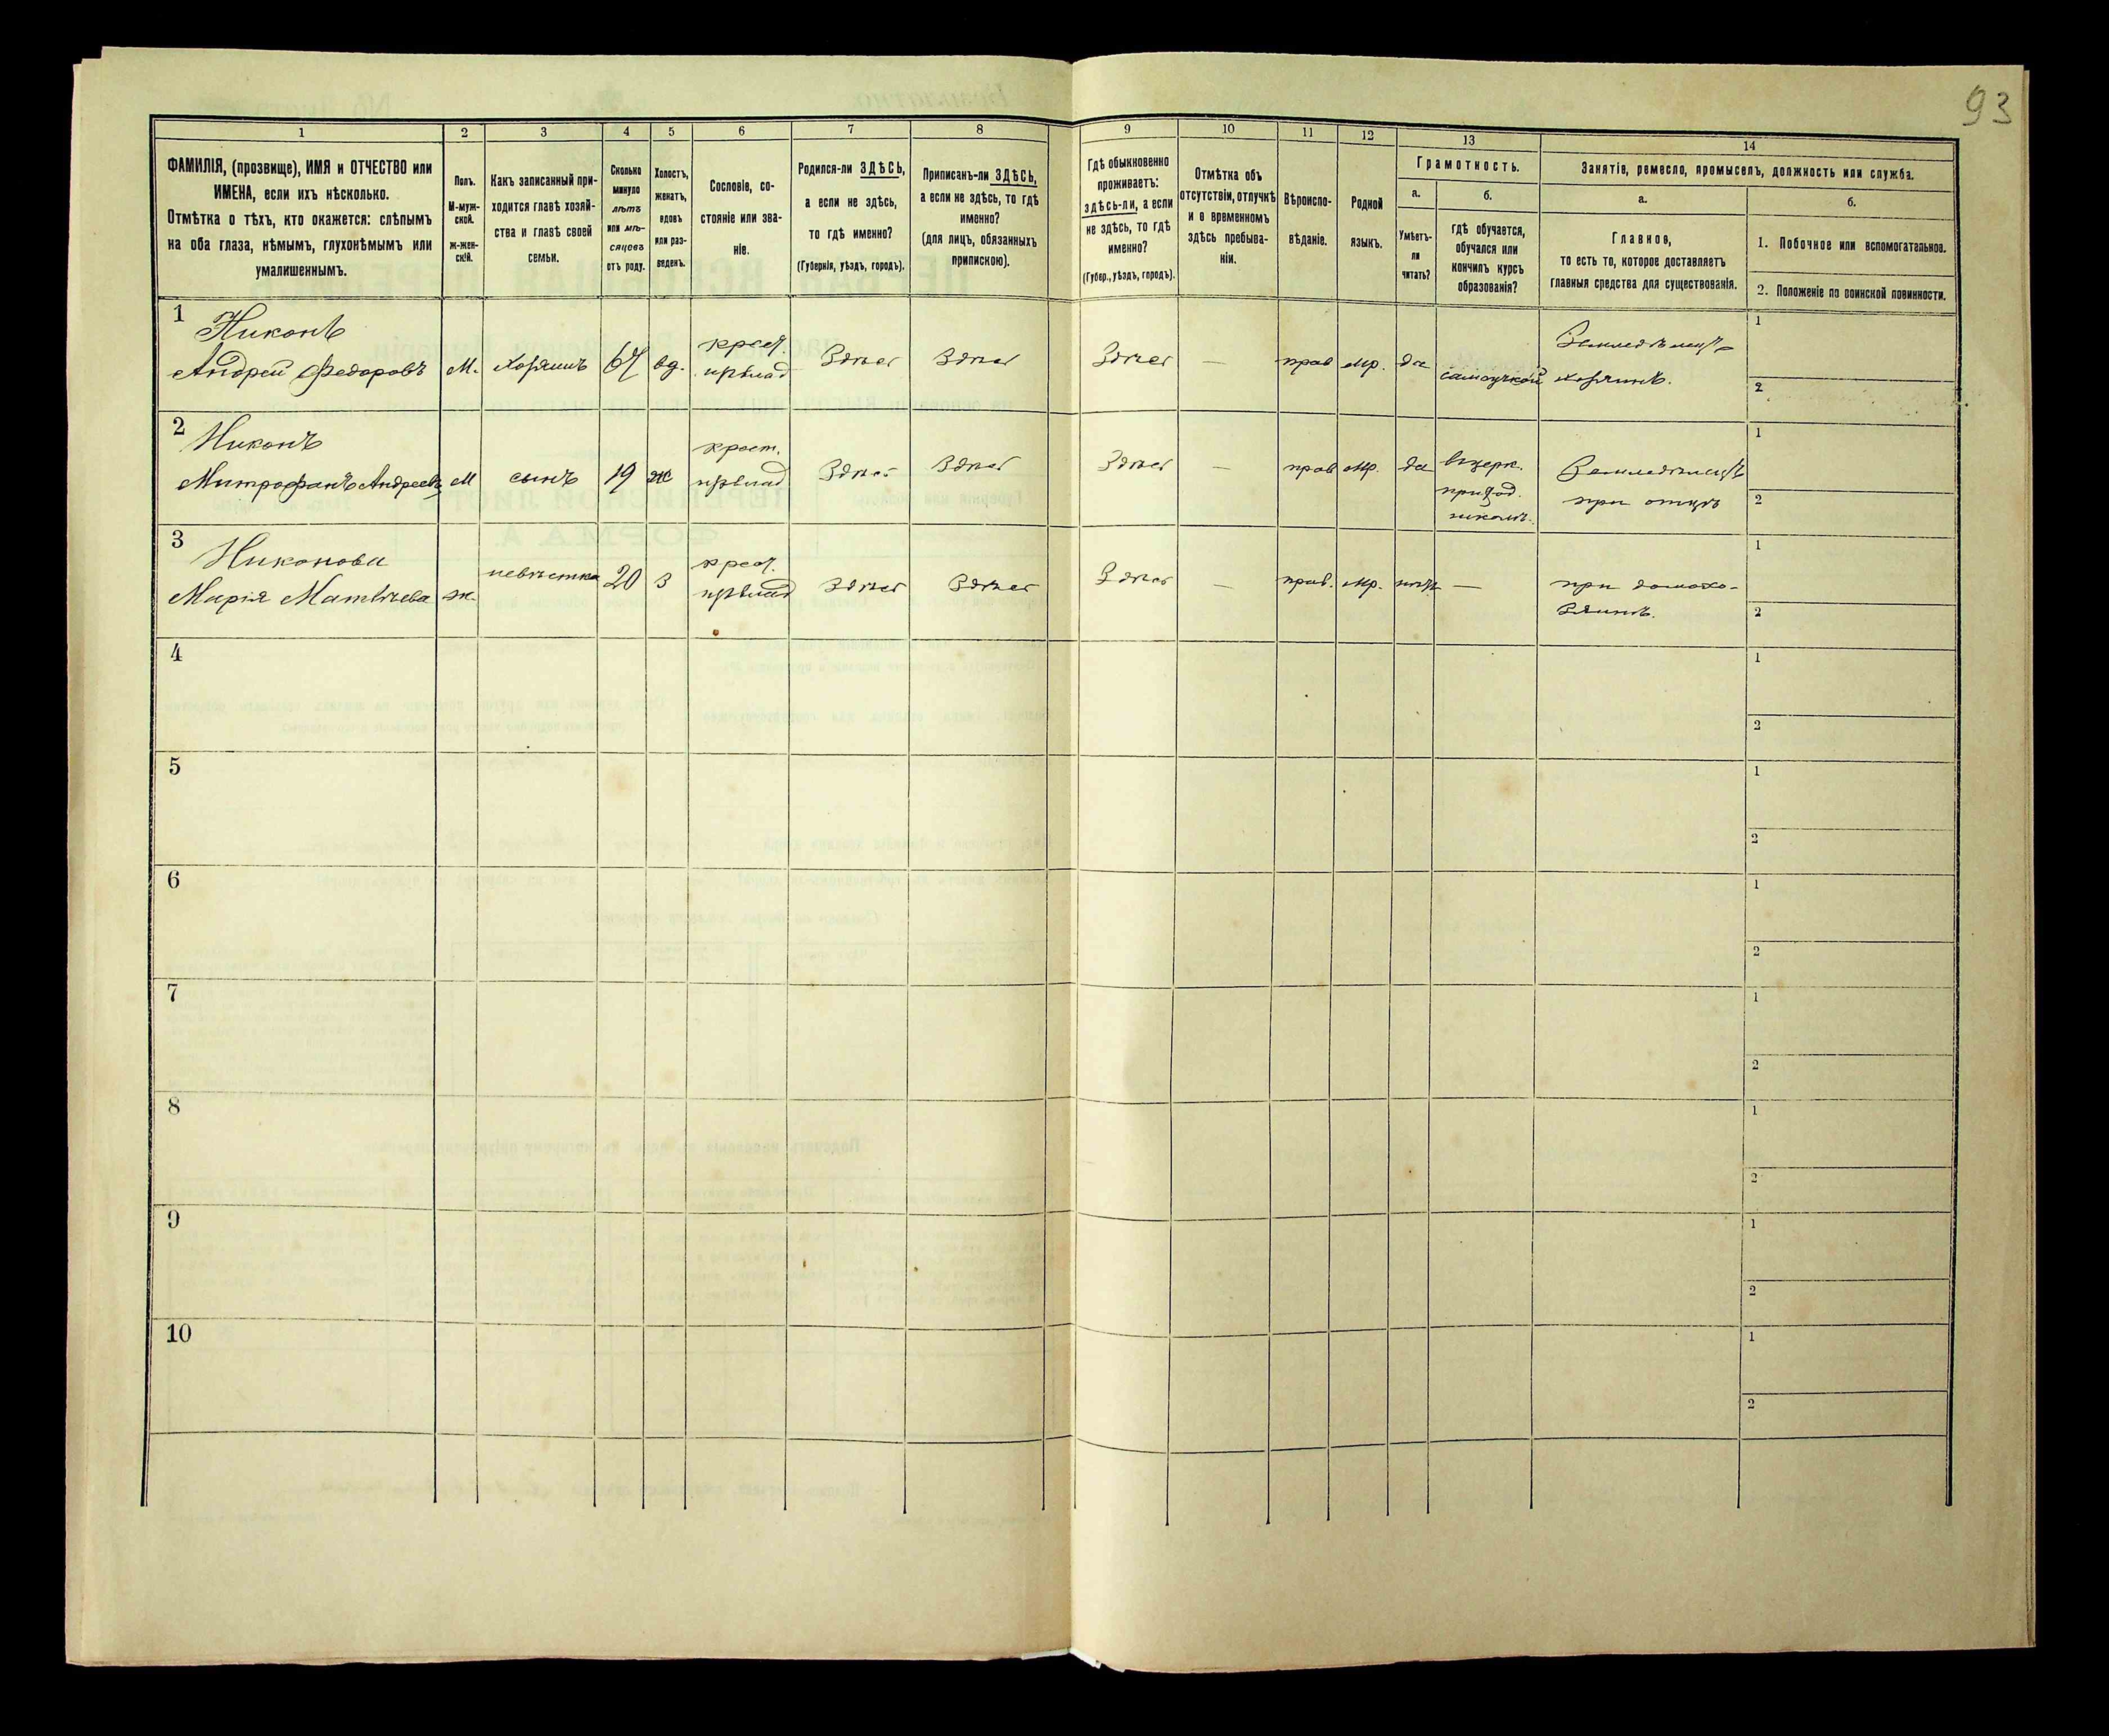 93
1 2 3 4 5 6 7 8 9 10 11 12 13 14
ФАМИЛІЯ, (прозвище), ИМЯ и ОТЧЕСТВО или
ИМЕНА, если ихъ нѣсколько.
Отмѣтка о тѣхъ, кто окажется: слѣпымъ
на оба глаза, нѣмымъ, глухонѣмымъ или
умалишеннымъ.
Полъ.
М-муж-
ской.
ж-жен-
скій.
Какъ записанный при-
ходится главѣ хозяй-
ства и главѣ своей
семьи.
Сколько
минуло
лѣтъ
или мѣ-
сяцевъ
отъ роду.
Холостъ,
женатъ,
вдовъ
или раз-
веденъ.
Сословіе, со-
стояніе или зва-
ніе.
Родился-ли ЗДѢСЬ,
а если не здѣсь,
то гдѣ именно?
(Губернія, уѣздъ, городъ).
Приписанъ-ли ЗДѢСЬ,
а если не здѣсь, то гдѣ
именно?
(для лицъ, обязанныхъ
припискою).
Гдѣ обыкновенно
проживаетъ:
здѣсь-ли, а если
не здѣсь, то гдѣ
именно?
(Губер., уѣздъ, городъ).
Отмѣтка объ
отсутствіи, отлучкѣ
и о временномъ
здѣсь пребыва-
ніи.
Вѣроиспо-
вѣданіе.
Родной
языкъ.
Грамотность.
а.
Умѣетъ-
ли
читать?
б.
гдѣ обучается,
обучался или
кончилъ курсъ
образованія?
Занятіе, ремесло, промыселъ, должность или служба.
а.
Главное,
то есть то, которое доставляетъ
главныя средства для существованія.
б.
1. Побочное или вспомогательное.
2. Положеніе по воинской повинности.
1 Никонъ
Андрей Федоровъ М. хозяинъ 67 вд. крест. Здѣсь Здѣсь Здѣсь — прав мр. да самоучкой хозяинъ.
1
2
2 Никонъ
Митрофанъ Андреевъ М сынъ 19 ж крест. Здѣсь Здѣсь Здѣсь — прав мр. да
приход.
школѣ.
при отцѣ
1
2
3 Никонова
Марія Матвѣева ж. невѣстка 20 з крест. Здѣсь Здѣсь Здѣсь — прав. мр. нѣтъ — при домохо-
зяинѣ.
1
2
4
1
2
5
1
2
6
1
2
7
1
2
8
1
2
9
1
2
10
1
2